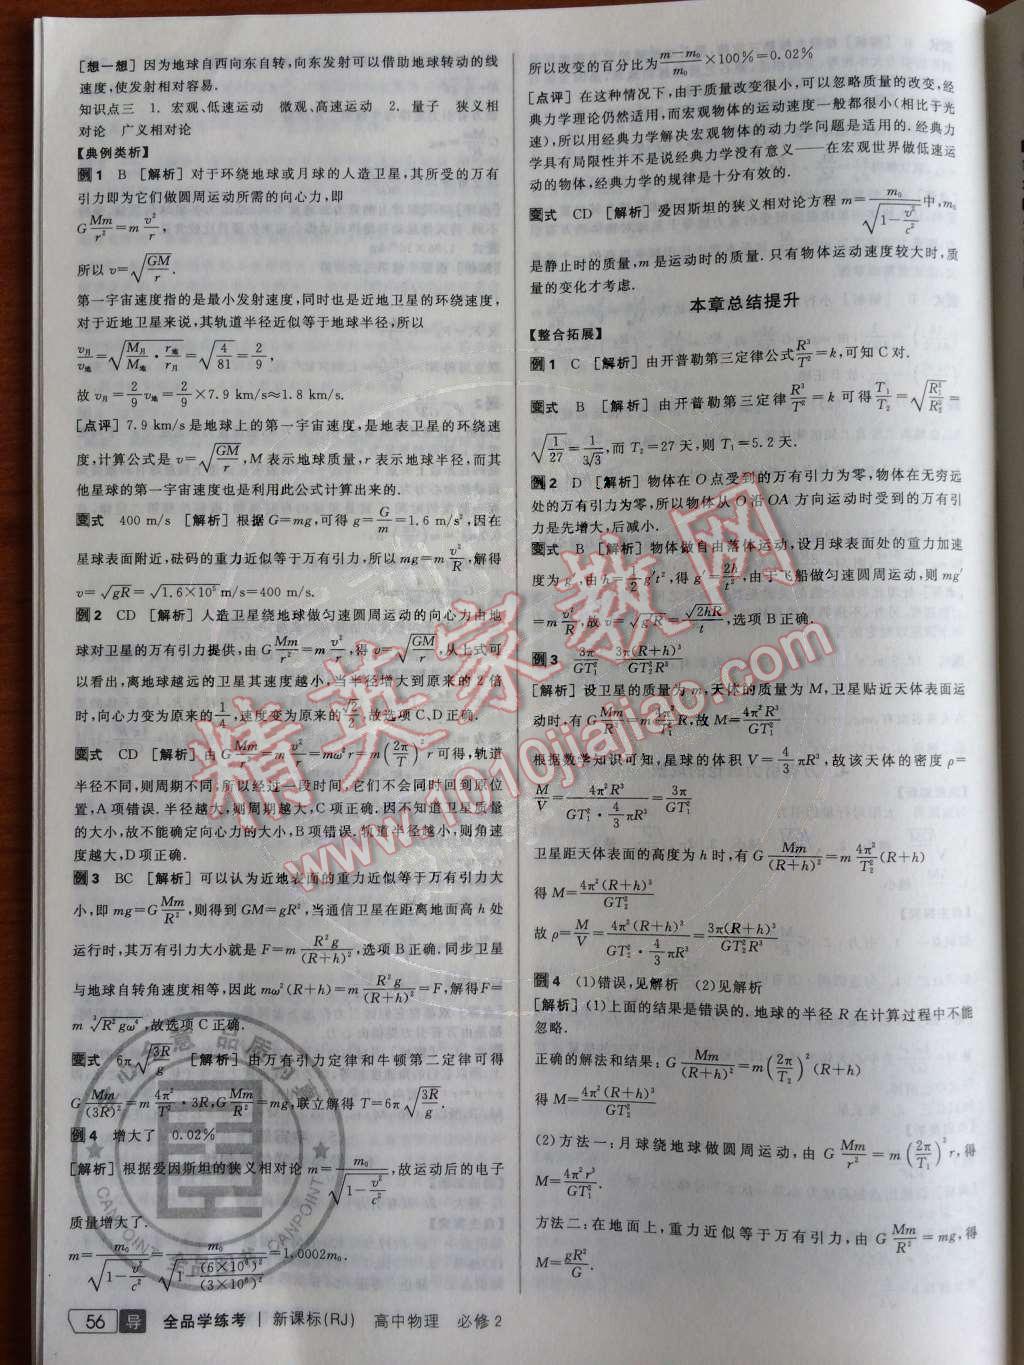 [想一想] 因为地球自西向东自转,向东发射可以借助地球转动的线
速度,使发射相对容易.
知识点三 1. 宏观、低速运动 微观、高速运动 2. 量子 狭义相
对论 广义相对论
【典例类析】
例1 B [解析] 对于环绕地球或月球的人造卫星,其所受的万有
引力即为它们做圆周运动所需的向心力,即
G Mm/r²=m v²/r,
所以 v=√(GM/r).
第一宇宙速度指的是最小发射速度,同时也是近地卫星的环绕速度,
对于近地卫星来说,其轨道半径近似等于地球半径,所以
v月/v地=√(M月/M地·r地/r月)=√(4/81)=2/9,
故 v月=2/9 v地=2/9×7.9 km/s≈1.8 km/s.
[点评] 7.9 km/s是地球上的第一宇宙速度,是地表卫星的环绕速
度,计算公式是 v=√(GM/r),M 表示地球质量,r 表示地球半径,而其
他星球的第一宇宙速度也是利用此公式计算出来的.
变式 400 m/s [解析] 根据 G=mg,可得 g=G/m=1.6 m/s²,因在
星球表面附近,砝码的重力近似等于万有引力,所以 mg=m v²/R,解得
v=√(gR)=√(1.6×10⁵) m/s=400 m/s.
例2 CD [解析] 人造卫星绕地球做匀速圆周运动的向心力由地
球对卫星的万有引力提供,由 G Mm/r²=m v²/r,得 v=√(GM/r),从上式可
以看出,离地球越远的卫星其速度越小,当半径增大到原来的 2 倍
时,向心力变为原来的 1/4,速度变为原来的 √2/2,故选项 C、D正确.
变式 CD [解析] 由 G Mm/r²=m v²/r=mω²r=m(2π/T)²r 可得,轨道
半径不同,则周期不同,所以经过一段时间,它们不会同时回到原位
置,A 项错误.半径越大,则周期越大,C 项正确.因不知道卫星质量
的大小,故不能确定向心力的大小,B 项错误.轨道半径越小,则角速
度越大,D 项正确.
例3 BC [解析] 可以认为近地表面的重力近似等于万有引力大
小,即 mg=G Mm/R²,则得到 GM=gR²,当通信卫星在距离地面高 h 处
运行时,其万有引力大小就是 F=m R²g/(R+h)²,选项 B 正确.同步卫星
与地球自转角速度相等,因此 mω²(R+h)=m R²g/(R+h)²=F,解得F=
m ³√(R²gω⁴),故选项 C 正确.
变式 6π√(3R/g) [解析] 由万有引力定律和牛顿第二定律可得
G Mm/(3R)²=m 4π²/T²·3R,G Mm/R²=mg,联立解得 T=6π√(3R/g).
例4 增大了 0.02%
[解析] 根据爱因斯坦的狭义相对论 m=m₀/√(1-v²/c²),故运动后的电子
质量增大了.
m=m₀/√(1-v²/c²)=m₀/√(1-(6×10⁶)²/(3×10⁸)²)=1.0002m₀.
56 导 全品学练考 | 新课标(RJ) 高中物理 必修2
所以改变的百分比为 (m-m₀)/m₀×100%=0.02%
[点评] 在这种情况下,由于质量改变很小,可以忽略质量的改变,经
典力学理论仍然适用,而宏观物体的运动速度一般都很小(相比于光
速),所以用经典力学解决宏观物体的动力学问题是适用的.经典力
学具有局限性并不是说经典力学没有意义——在宏观世界做低速运
动的物体,经典力学的规律是十分有效的.
变式 CD [解析] 爱因斯坦的狭义相对论方程 m=m₀/√(1-v²/c²)中,m₀
是静止时的质量,m 是运动时的质量.只有物体运动速度较大时,质
量的变化才考虑.
本章总结提升
【整合拓展】
例1 C [解析] 由开普勒第三定律公式 R³/T²=k,可知 C 对.
变式 B [解析] 由开普勒第三定律 R³/T²=k 可得 T₁/T₂=√(R₁³/R₂³)=
√(1/27)=1/(3√3),而 T₂=27 天,则 T₁=5.2 天.
例2 D [解析] 物体在 O 点受到的万有引力为零,物体在无穷远
处的万有引力为零,所以物体从 O 沿 OA 方向运动时受到的万有引
力是先增大,后减小.
变式 B [解析] 物体做自由落体运动,设月球表面处的重力加速
度为 g′,由 h=1/2 g′t²,得 g′=2h/t²,由于飞船做匀速圆周运动,则 mg′
=m v²/R,故 v=√(g′R)=√(2hR)/t,选项 B 正确.
例3 3π/GT₁² 3π(R+h)³/GT₂²R³
[解析] 设卫星的质量为 m,天体的质量为 M,卫星贴近天体表面运
动时,有 G Mm/R²=m 4π²/T₁² R,故 M=4π²R³/GT₁²
根据数学知识可知,星球的体积 V=4/3 πR³,故该天体的密度 ρ=
M/V=4π²R³/(GT₁²·4/3 πR³)=3π/GT₁²
卫星距天体表面的高度为 h 时,有 G Mm/(R+h)²=m 4π²/T₂² (R+h)
得 M=4π²(R+h)³/GT₂²
故 ρ=M/V=4π²(R+h)³/(GT₂²·4/3 πR³)=3π(R+h)³/GT₂²R³
例4 (1)错误,见解析 (2)见解析
[解析] (1)上面的结果是错误的.地球的半径 R 在计算过程中不能
忽略.
正确的解法和结果:G Mm/(R+h)²=m(2π/T₂)²(R+h)
得 M=4π²(R+h)³/GT₂²
(2)方法一:月球绕地球做圆周运动,由 G Mm/r²=m(2π/T₁)²r,得
M=4π²r³/GT₁².
方法二:在地面上,重力近似等于万有引力,由 G Mm/R²=mg,得
M=gR²/G.
精英家教网
www.1010jiajiao.com
匠心创意 品质为尊
CANPOINT
CANPOINT